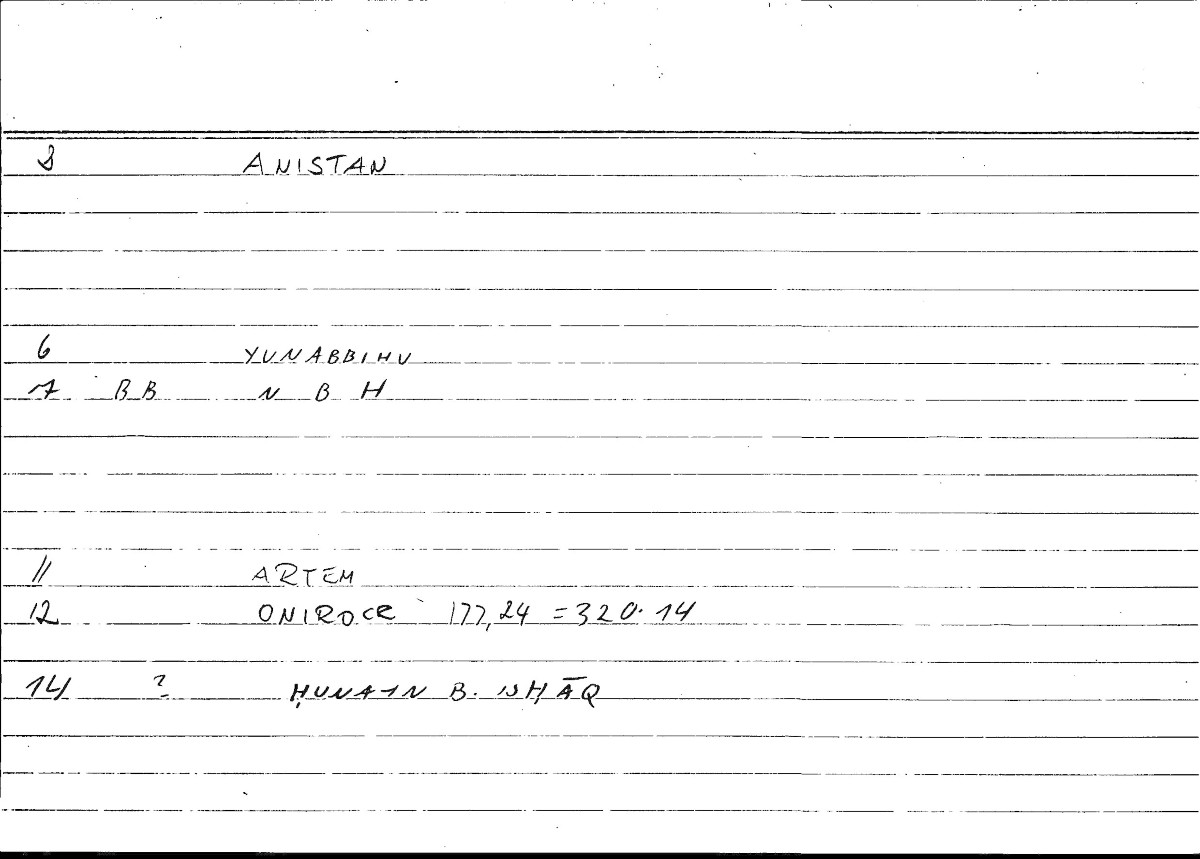 ANISTAN
6 YUNABBIHU
7 BB N B H
11 ARTEM
12 ONIROCR 177,24 = 320.14
14 ? ḤUNAIN B. ISḤĀQ